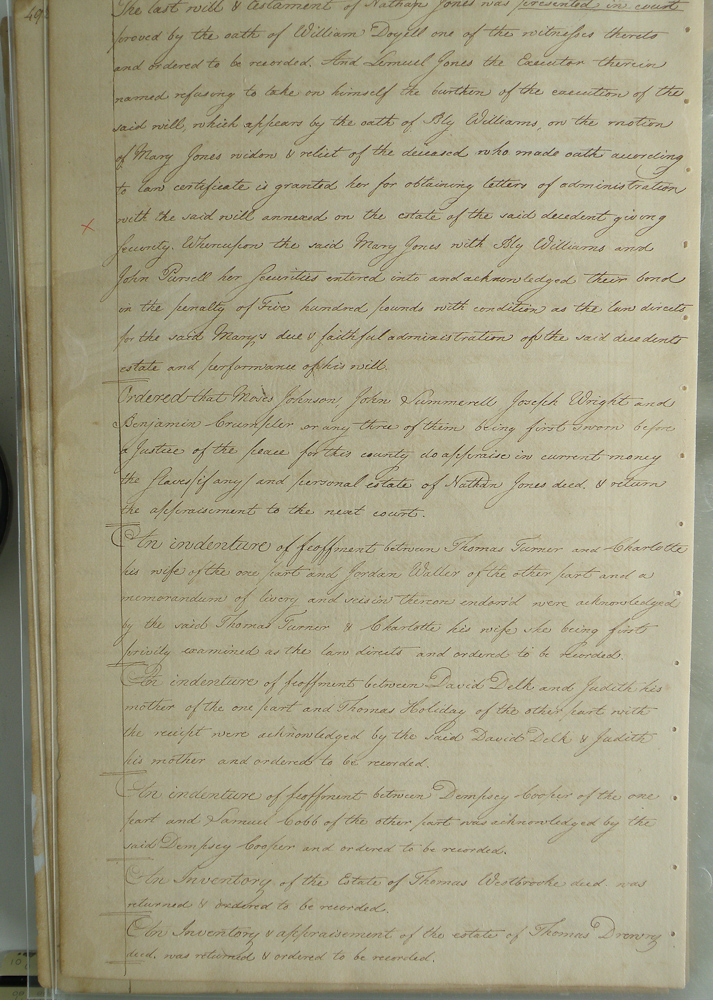 492
The last will & testament of Nathan Jones was presented in court
proved by the oath of William Doyell one of the witnesses thereto
and ordered to be recorded. And Lemuel Jones the Executor therein
named refusing to take on himself the burthen of the execution of the
said will, which appears by the oath of Bly Williams, on the motion
of Mary Jones widow & relict of the deceased who made oath according
to law certificate is granted her for obtaining letters of administration
with the said will annexed on the estate of the said decedent giving
security. Whereupon the said Mary Jones with Bly Williams and
John Pursell her securities entered into and acknowledged their bond
in the penalty of Five hundred pounds with condition as the law directs
for the said Mary's due & faithful administration of the said decedents
estate and performance of his will.
Ordered that Moses Johnson John Summerell Joseph Wright and
Benjamin Crumpler or any three of them being first sworn before
a Justice of the peace for this county do appraise in current money
the slaves/if any/ and personal estate of Nathan Jones deed. & return
the appraisement to the next court.
An indenture of feoffment between Thomas Turner and Charlotte
his wife of the one part and Jordan Waller of the other part and a
memorandum of livery and seisin thereon endors'd were acknowledged
by the said Thomas Turner & Charlotte his wife she being first
privily examined as the law directs and ordered to be recorded.
An indenture of feoffment between David Delk and Judith his
mother of the one part and Thomas Holiday of the other part with
the receipt were acknowledged by the said David Delk & Judith
his mother and ordered to be recorded.
An indenture of feoffment between Dempsey Cooper of the one
part and Samuel Cobb of the other part was acknowledged by the
said Dempsey Cooper and ordered to be recorded.
An Inventory of the Estate of Thomas Westbrooke deed. was
returned & ordered to be recorded.
An Inventory & appraisement of the estate of Thomas Drewry
deed. was returned & ordered to be recorded.